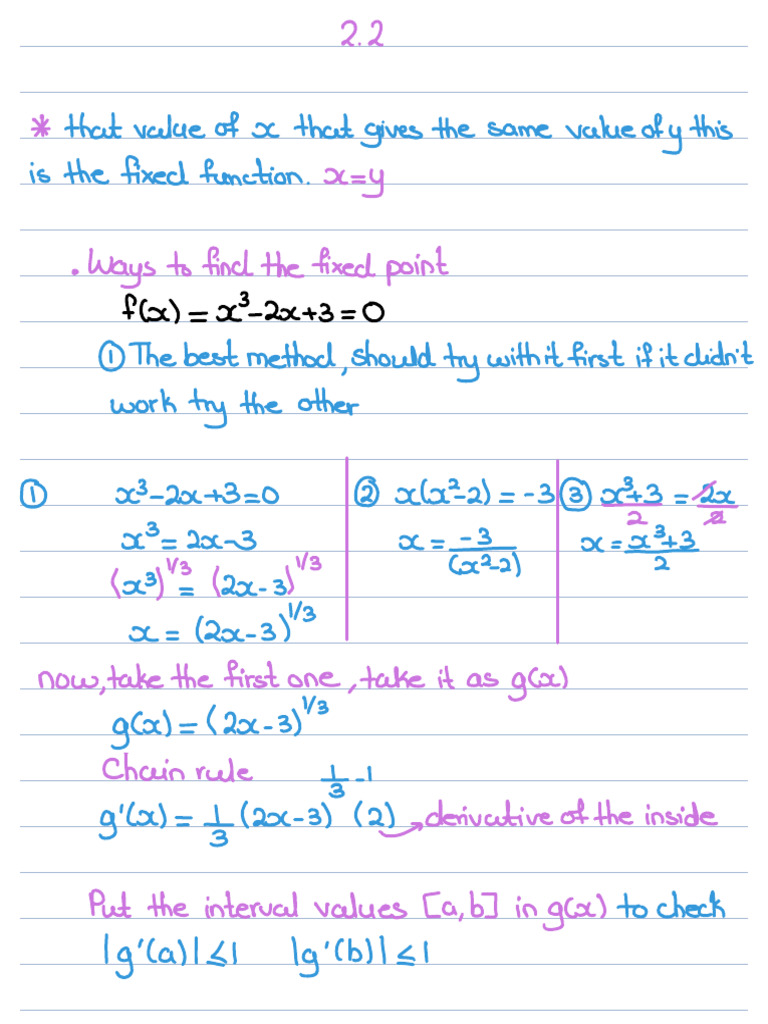 2.2
* that value of x that gives the same value of y this
is the fixed function. x=y
. Ways to find the fixed point
f(x) = x³-2x+3=0
① The best method, should try with it first if it didn't
work try the other
① x³-2x+3=0
x³ = 2x-3
(x³)^1/3 = (2x-3)^1/3
x = (2x-3)^1/3
② x(x²-2) = -3
x = -3/(x²-2)
③ x³+3/2 = 2x/2
x = x³+3/2
now, take the first one, take it as g(x)
g(x) = (2x-3)^1/3
Chain rule
g'(x) = 1/3 (2x-3)^1/3-1 (2) → derivative of the inside
Put the interval values [a,b] in g(x) to check
|g'(a)| ≤ 1 |g'(b)| ≤ 1